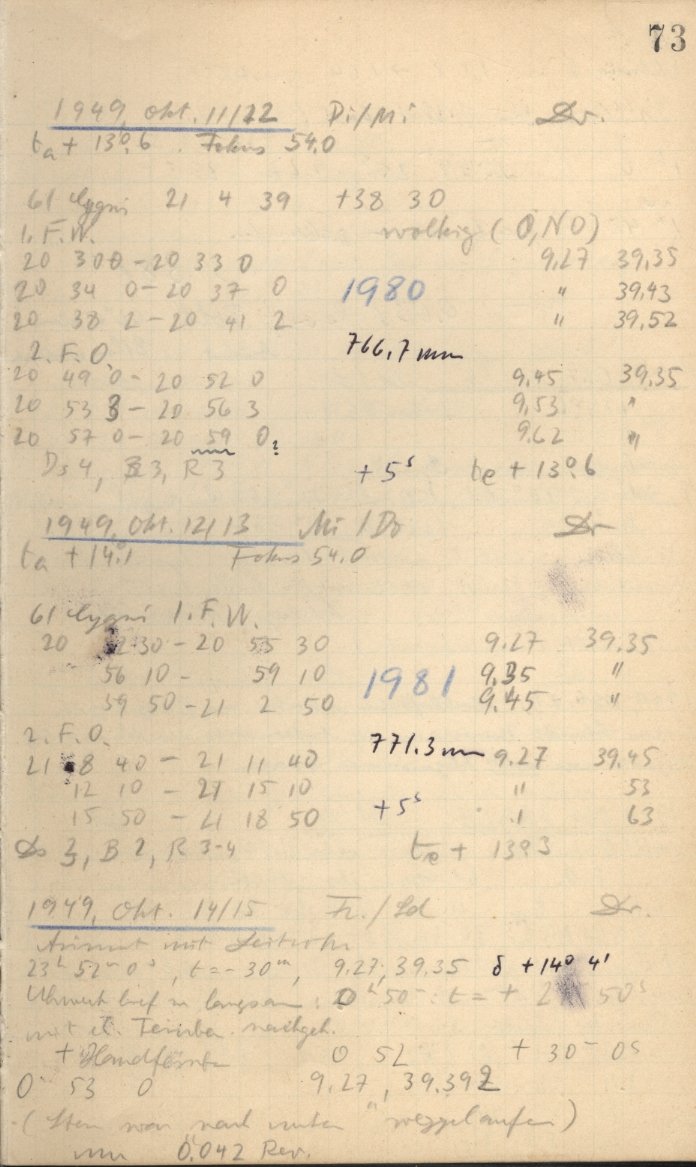 73
1949, Okt. 11/12 Di/Mi Dr.
ta + 13°.6 Fokus 54.0
61 Cygni 21 4 39 +38 30
1. F. W. wolkig (O, NO)
20 30 0 – 20 33 0 9,27 39,35
20 34 0 – 20 37 0 1980 " 39,43
20 38 2 – 20 41 2 " 39,52
766,7 mm
2. F. O.
20 49 0 – 20 52 0 9,45 39,35
20 53 3 – 20 56 3 9,53 "
20 57 0 – 20 59 0? 9,62 "
Ds 4, B 3, R 3 +5s te + 13°.6
1949, Okt. 12/13 Mi/Do Dr
ta + 14.1 Fokus 54.0
61 Cygni 1. F. W.
20 52 30 – 20 55 30 9.27 39.35
56 10 – 59 10 1981 9.35 "
59 50 – 21 2 50 9.45 "
2. F. O. 771.3 mm
21 8 40 – 21 11 40 9.27 39.45
12 10 – 21 15 10 " 53
15 50 – 21 18 50 +5s " 63
Ds 3, B 2, R 3-4 te + 13°.3
1949, Okt. 14/15 Fr./Sd Dr.
Azimut mit Leitrohr
23h 52m 0s, t = – 30m, 9.27, 39.35 δ +14° 4'
Uhrwerk lief zu langsam: 0h 50m: t = + 50s
mit nachgeh.
+ 0 52 + 30m 0s
0 53 0 9.27, 39.392
(Stern war "nach unten" weggelaufen)
um 0.042 Rev.